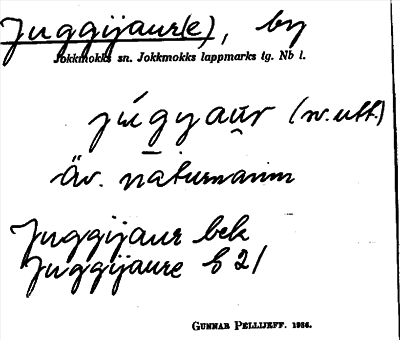 Juggijaur(e), by
Jokkmokks sn. Jokkmokks lappmarks tg. Nb l.
júgyau̯r (sv. utt.)
Äv. naturnamn
Juggijaur bek
Juggijaure G 21
GUNNAR PELLIJEFF. 1956.